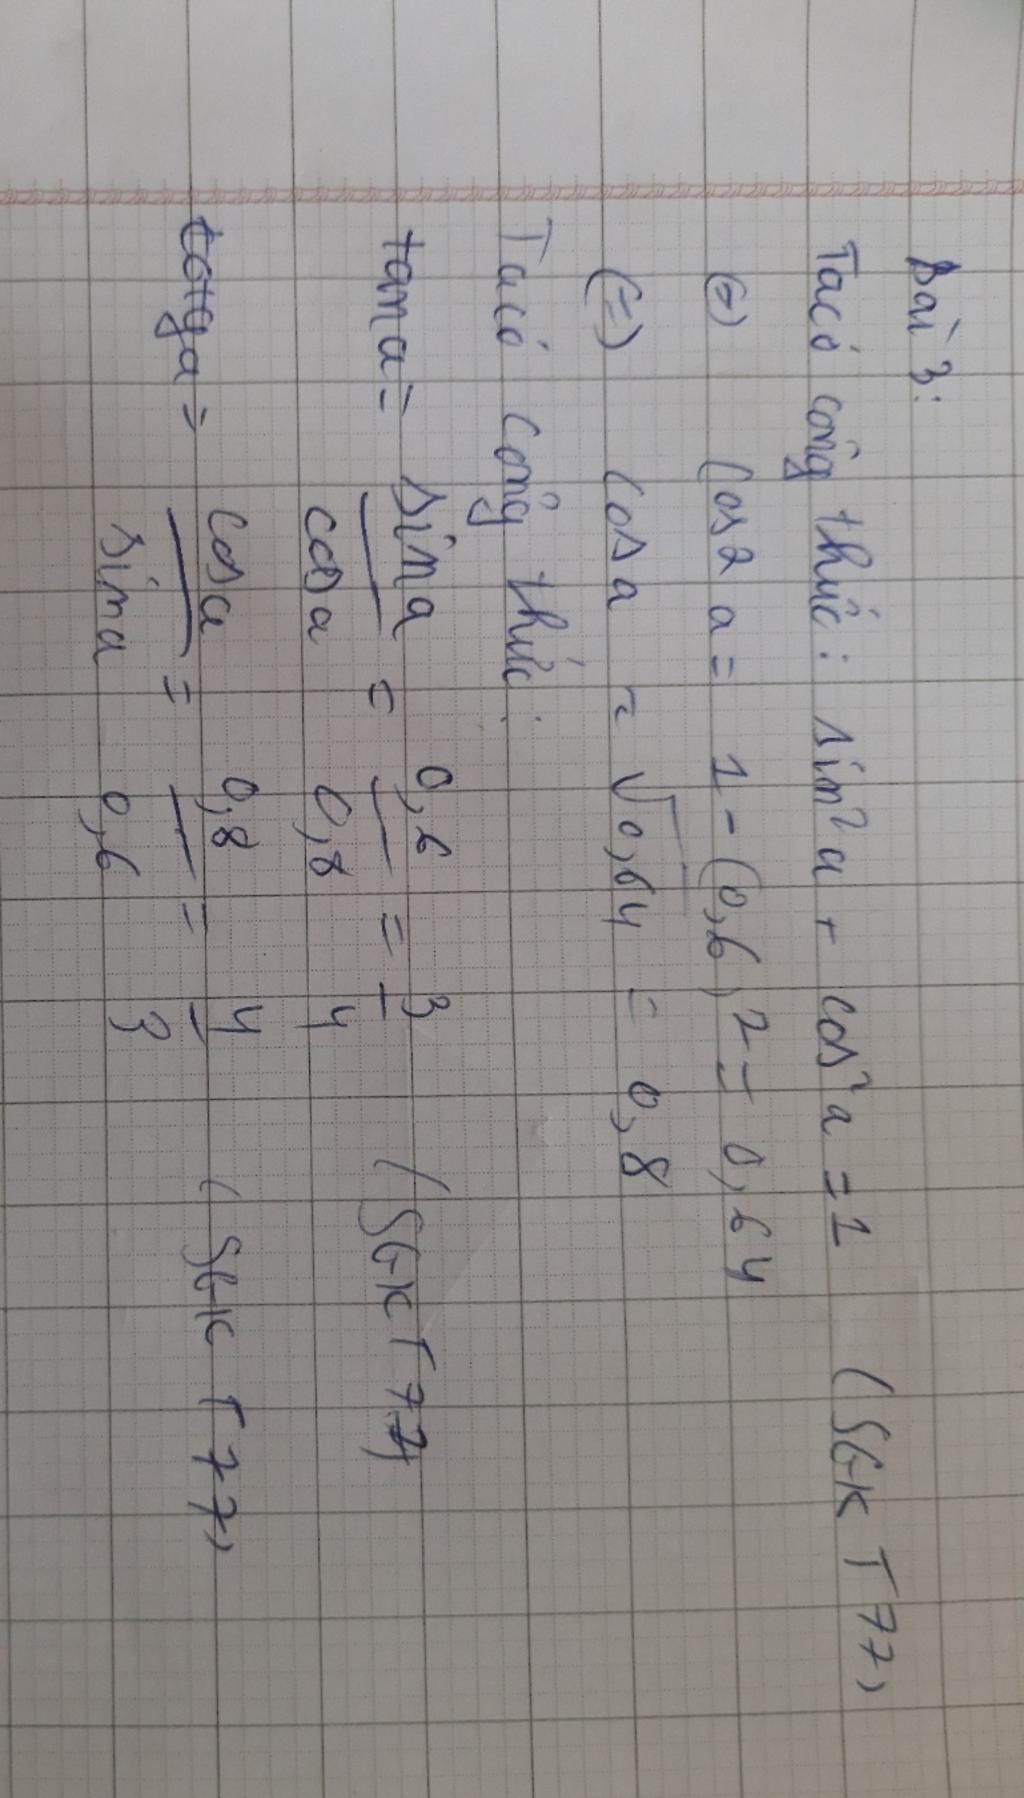 Bài 3:
Ta có công thức: sin²a + cos²a = 1 (SGK T77)
(=) cos2 a = 1 - (0,6)2 = 0,64
(=) cos a = √0,64 = 0,8
Ta có công thức:
tan a = sin a / cos a = 0,6 / 0,8 = 3 / 4 (SGK T77)
cotga = cos a / sin a = 0,8 / 0,6 = 4 / 3 (SGK T77)